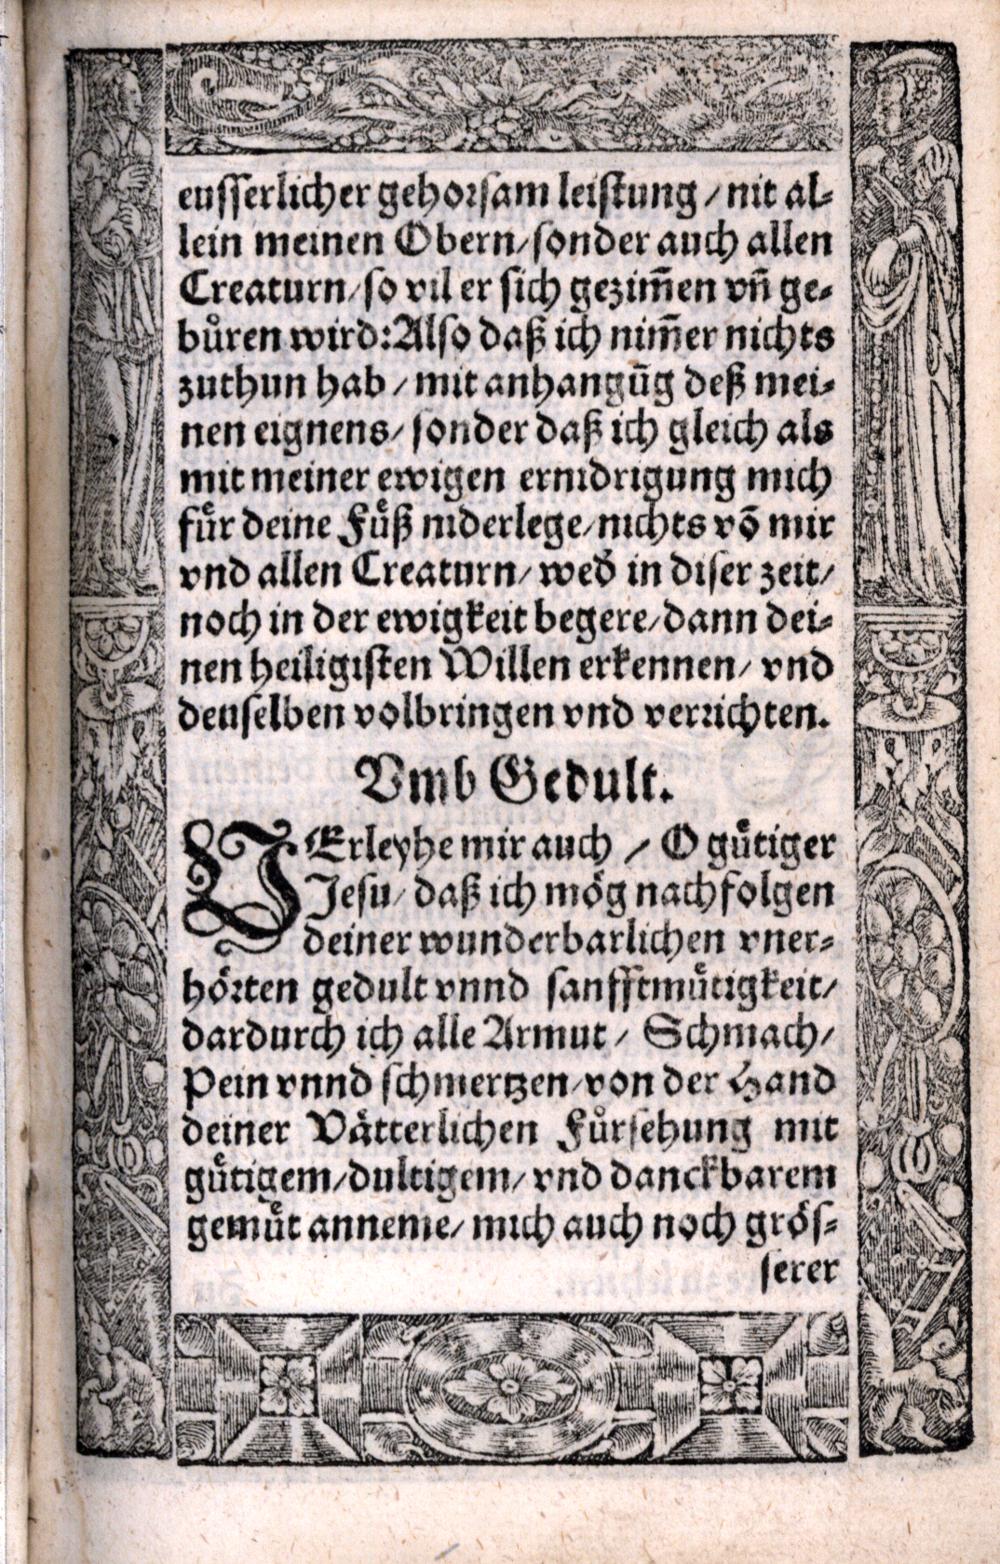 eusserlicher gehorsam leistung / nit al-
lein meinen Obern / sonder auch allen
Creaturn / so vil er sich gezim̃en vñ ge-
buͤren wird: Also daß ich nim̃er nichts
zuthun hab / mit anhangũg deß mei-
nen eignens / sonder daß ich gleich als
mit meiner ewigen ernidrigung mich
fuͤr deine Fuͤß niderlege / nichts võ mir
vnd allen Creaturn / wed̃ in diser zeit /
noch in der ewigkeit begere / dann dei-
nen heiligisten Willen erkennen / vnd
denselben volbringen vnd verrichten.
Vmb Gedult.
VErleyhe mir auch / O guͤtiger
Jesu / daß ich moͤg nachfolgen
deiner wunderbarlichen vner-
hoͤrten gedult vnnd sanfftmuͤtigkeit /
dardurch ich alle Armut / Schmach /
Pein vnnd schmertzen / von der Hand
deiner Vaͤtterlichen Fuͤrsehung mit
guͤtigem / dultigem / vnd danckbarem
gemuͤt anneme / mich auch noch groͤs-
serer